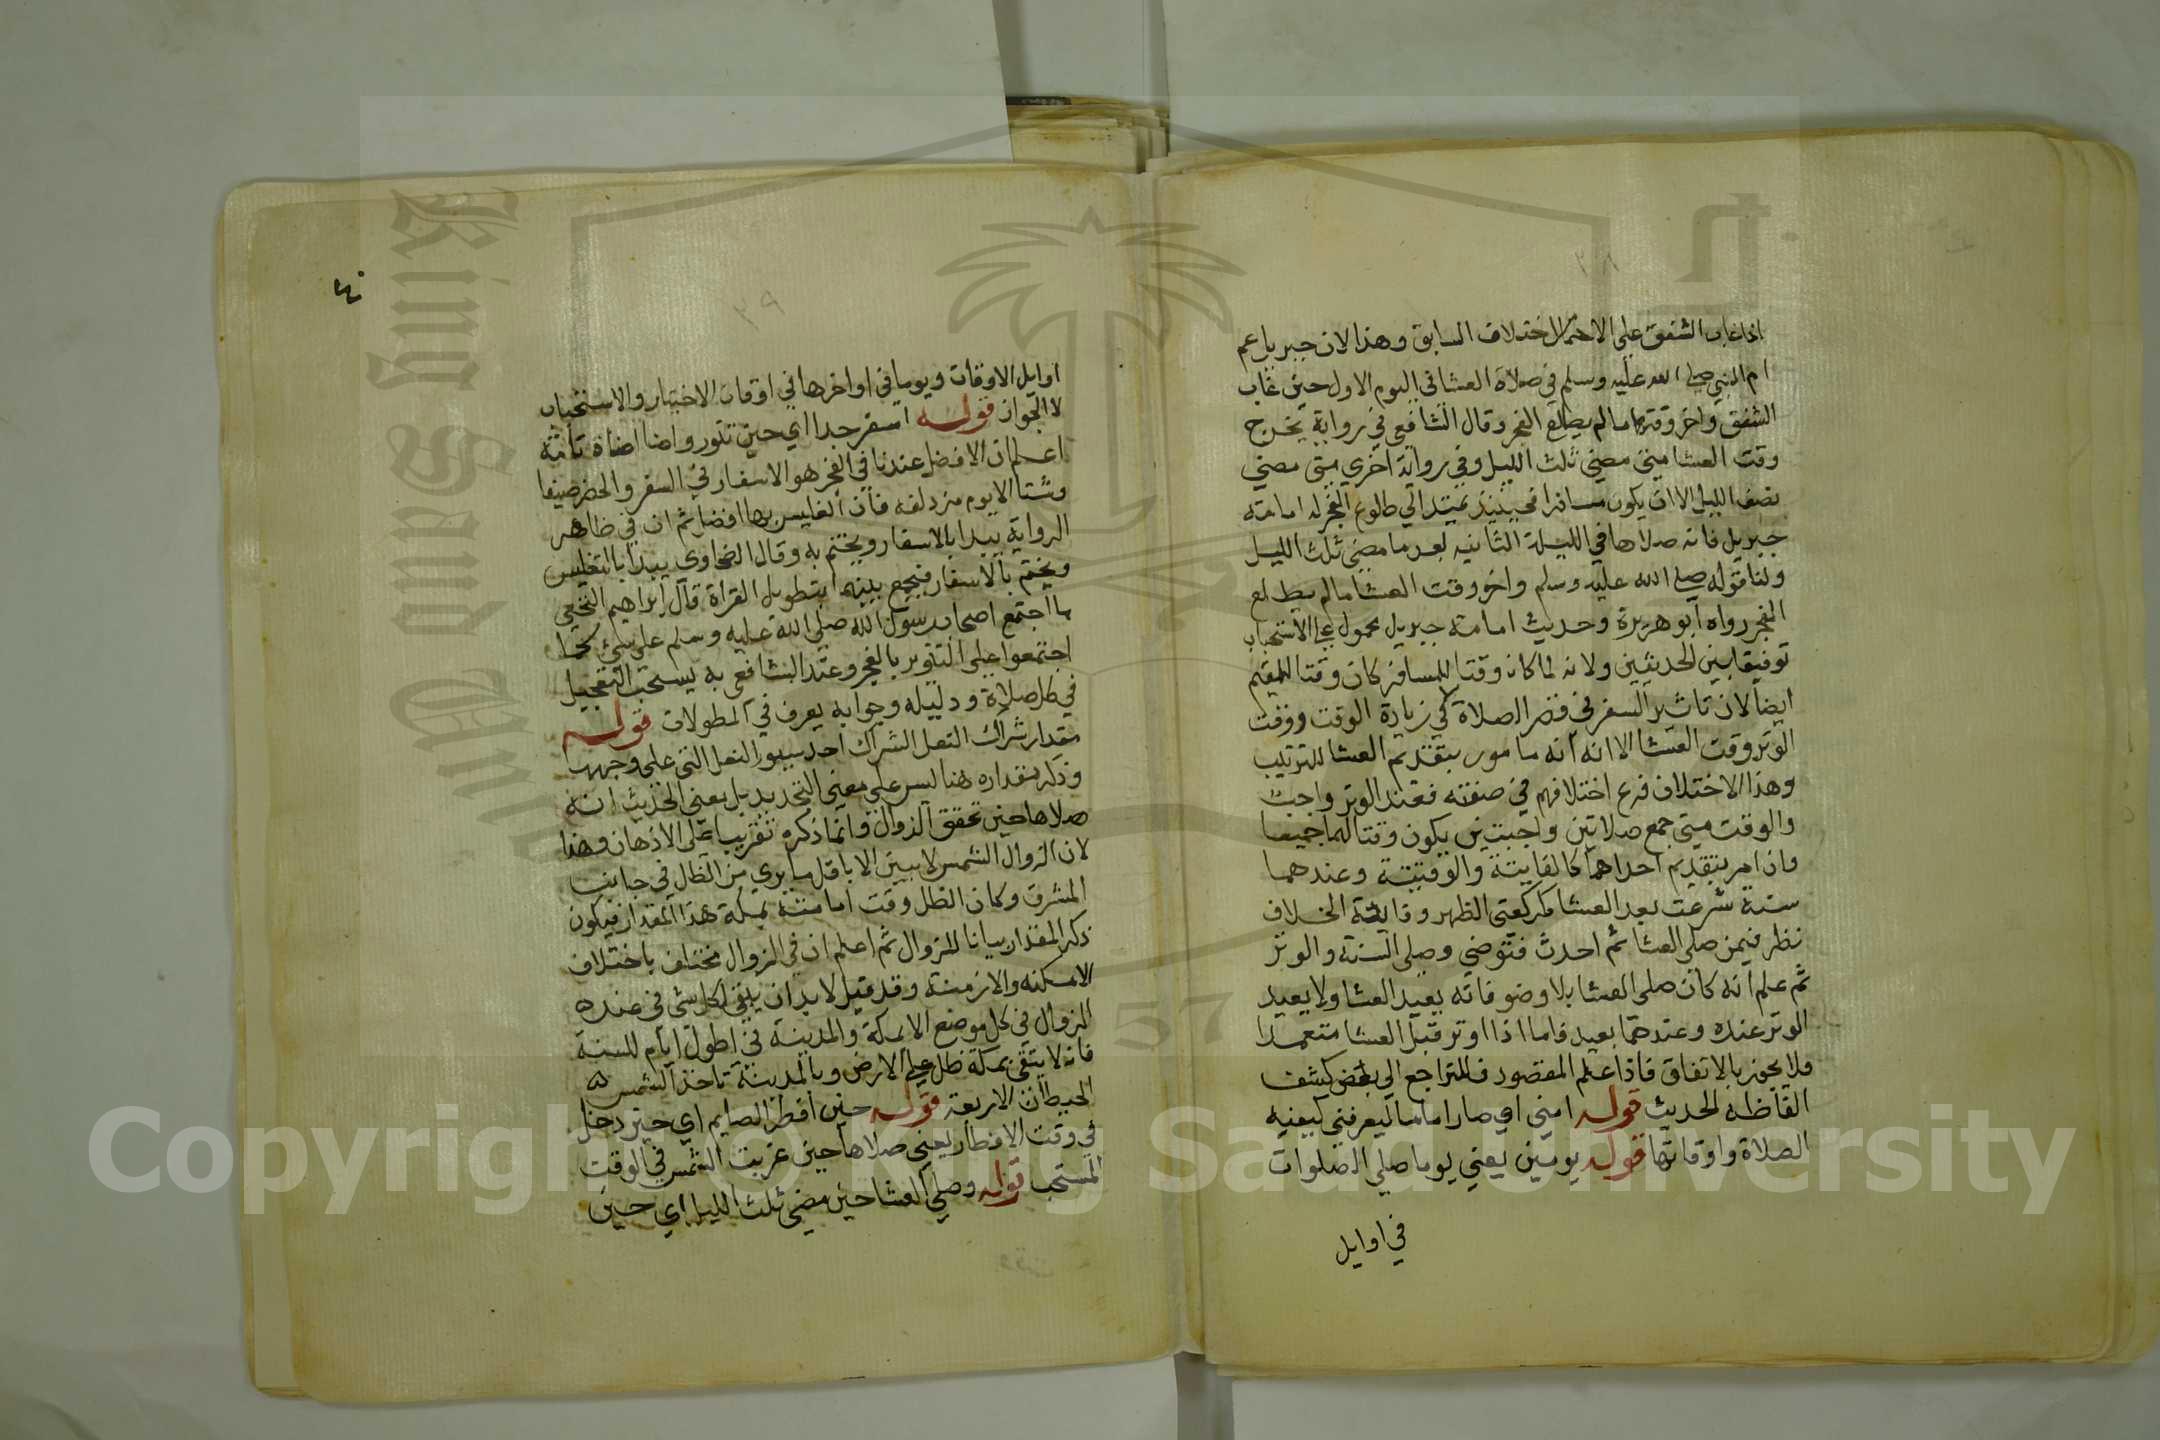 ٣٨
اذا غاب الشفق على الاحمر الاختلاف السابق وهذا لان جبريل عم
ام النبي صلى الله عليه وسلم في صلاة العشا في اليوم الاول حين غاب
الشفق واخر وقتها ما لم يطلع الفجر وقال الشافعي في رواية يخرج
وقت العشا متى مضى ثلث الليل وفي رواية اخرى متى مضى
نصف الليل الا ان يكون مسافرا فحينئذ يمتد الى طلوع الفجر له امامته
جبريل فانه صلاها في الليلة الثانيه بعد ما مضى ثلث الليل
ولنا قوله صلى الله عليه وسلم واخر وقت العشا ما لم يطلع
الفجر رواه ابو هريرة وحديث امامة جبريل محمول على الاستحباب
توفيقا بين الحديثين ولانه لما كان وقتا للمسافر كان وقتا للمقيم
ايضا لان تاثير السفر في قصر الصلاة لا في زيادة الوقت ووقت
الوتر وقت العشا الا انه مامور بتقديم العشا للترتيب
وهذا الاختلاف فرع اختلافهم في صفته فعند الوتر واجب
والوقت متى جمع صلاتين واجبتين يكون وقتا لهما جميعا
وان امر بتقديم احداهما كالفايتة والوقتية وعندهما
سنة شرعت بعد العشا كركعتي الظهر وفايدة الخلاف
تظهر فيمن صلى العشا ثم احدث فتوضى وصلى السنة والوتر
ثم علم انه كان صلى العشا بلا وضو فانه يعيد العشا ولا يعيد
الوتر عنده وعندهما يعيد فاما اذا اوتر قبل العشا متعمدا
فلا يجوز بالاتفاق فاذا علم المقصود فلنتراجع الى بعض كشف
الفاظه الحديث قوله امني اي صار اماما ليعرفني كيفية
الصلاة واوقاتها قوله يومين يعني يوما صلى الصلوات
في اوايل
٣٩
اوايل الاوقات ويوما في اواخرها في اوقات الاختيار والاستحباب
لا الجواز قوله اسفر جدا اي حين تنور واضا اضاة تامة
اعلم ان الافضل عندنا في الفجر هو الاسفار في السفر والحضر صيفا
وشتا الا يوم مزدلفه فان التغليس بها افضل ثم ان في ظاهر
الرواية يبدا بالاسفار ويختم به وقال الطحاوي يبدا بالتغليس
ويختم بالاسفار فيجمع بينهما بتطويل القراة قال ابراهيم النخعي
ما اجتمع اصحاب رسول الله صلى الله عليه وسلم على شئ كما
اجتمعوا على التنوير بالفجر وعند الشافعي به يستحب التعجيل
في كل صلاة ودليله وجوابه يعرف في المطولات قوله
مقدار شراك النعل الشراك احد سيور النعل التي على وجهها
وذكر مقداره هنا ليس على معنى التحديد بل معنى الحديث انه
صلاها حين تحقق الزوال وانما ذكره تقريبا على الاذهان وهذا
لان الزوال الشمس لا يبين الا باقل ما يرى من الظل في جانب
المشرق وكان الظل وقت امامته بمكة هذا المقدار فيكون
ذكر المقدار بيانا للزوال ثم اعلم ان في الزوال مختلف باختلاف
الامكنه والازمنة وقد قيل لا بد ان يبقى لكل شى فى عنده
الزوال في كل موضع الا بمكة والمدينة في اطول ايام السنة
فانه لا يبقى بمكة ظل على الارض وبالمدينة تاخذ الشمس
الحيطان الاربعة قوله حين افطر الصايم اي حين دخل
في وقت الافطار يعني صلاها حين غربت الشمس في الوقت
المستحب قوله وصلى العشا حين مضى ثلث الليل اي حين
Copyright © King Saud University
King Saud University
57